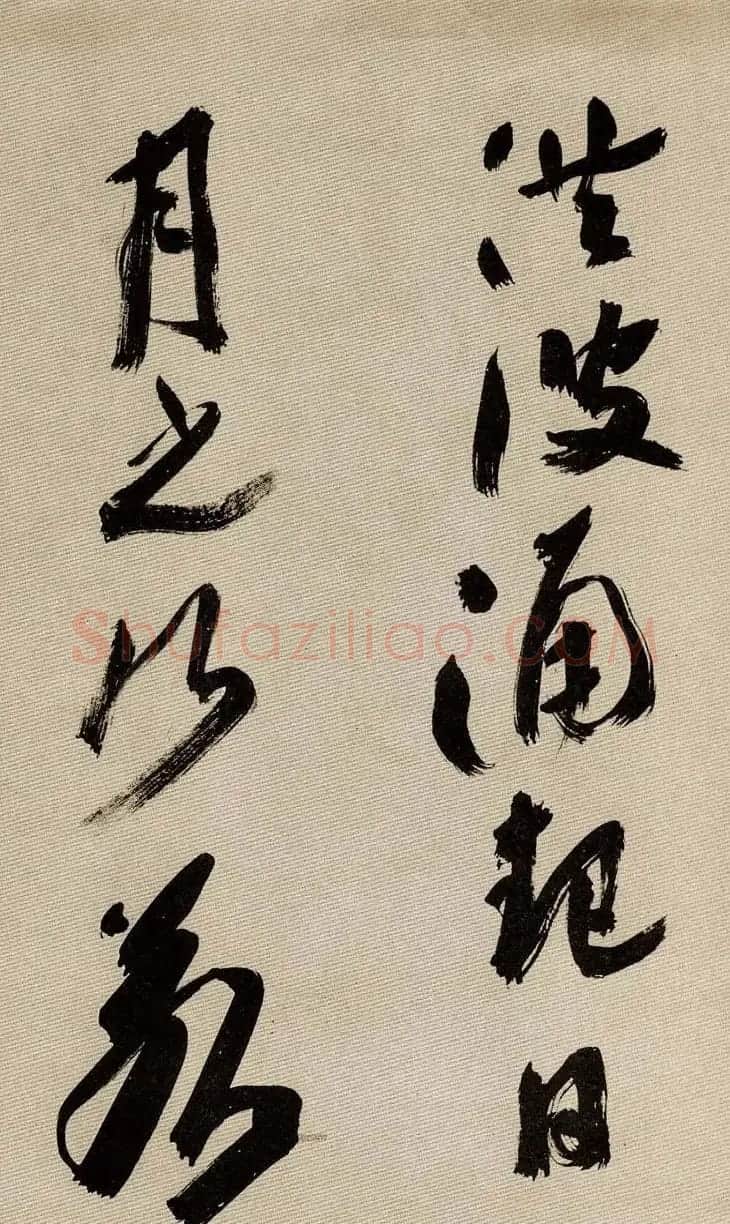 洪波涌起日
月之行若
Shufaziliao.COM